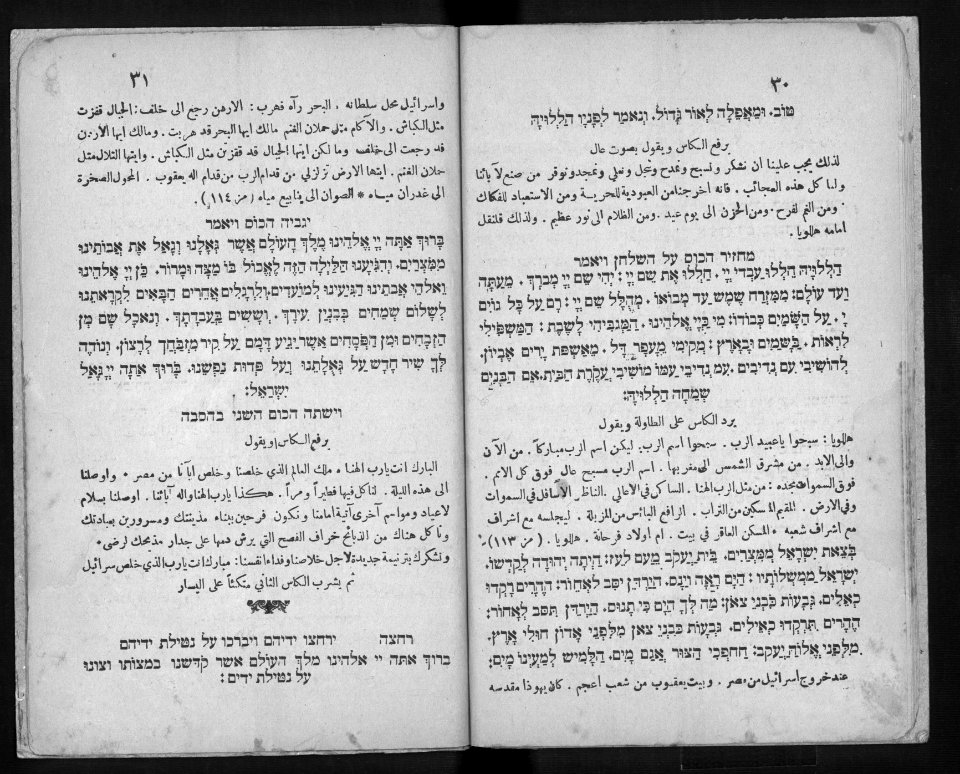 ٣٠
טוֹב. וּמֵאֲפֵלָה לְאוֹר גָּדוֹל. וְנֹאמַר לְפָנָיו הַלְלוּיָהּ
يرفع الكاس ويقول بصوت عال
لذلك يجب علينا ان نشكر ونسبح ونمدح ونجل ونعلي ونمجد ونوقر من صنع لآبائنا
ولنا كل هذه العجائب. فانه اخرجنا من العبودية للحرية ومن الاستعباد للفكاك
ومن الغم لفرح. ومن الحزن الى يوم عيد. ومن الظلام الى نور عظيم. ولذلك فلنقل
امامه هللويا.
מחזיר הכוס על השלחן ויאמר
הַלְלוּיָהּ הַלְלוּ עַבְדֵי יְיָ. הַלְלוּ אֶת שֵׁם יְיָ: יְהִי שֵׁם יְיָ מְבֹרָךְ. מֵעַתָּה
וְעַד עוֹלָם: מִמִּזְרַח שֶׁמֶשׁ עַד מְבוֹאוֹ. מְהֻלָּל שֵׁם יְיָ: רָם עַל כָּל גּוֹיִם
יְיָ. עַל הַשָּׁמַיִם כְּבוֹדוֹ: מִי כַּיְיָ אֱלֹהֵינוּ. הַמַּגְבִּיהִי לָשָׁבֶת: הַמַּשְׁפִּילִי
לִרְאוֹת. בַּשָּׁמַיִם וּבָאָרֶץ: מְקִימִי מֵעָפָר דָּל. מֵאַשְׁפֹּת יָרִים אֶבְיוֹן.
לְהוֹשִׁיבִי עִם נְדִיבִים. עִם נְדִיבֵי עַמּוֹ מוֹשִׁיבִי עֲקֶרֶת הַבַּיִת. אֵם הַבָּנִים
שְׂמֵחָה הַלְלוּיָהּ:
يرد الكاس على الطاولة ويقول
هللويا: سبحوا ياعبيد الرب. سبحوا اسم الرب. ليكن اسم الرب مباركاً. من الآن
والى الابد. من مشرق الشمس الى مغربها. اسم الرب مسبح عال فوق كل الامم.
فوق السموات مجده: من مثل الرب الهنا. الساكن في الاعالي. الناظر الاسافل في السموات
وفي الارض. المقيم المسكين من التراب. الرافع البائس من المزبلة. ليجلسه مع اشراف
مع اشراف شعبه. المسكن العاقر في بيت. ام اولاد فرحانة. هللويا. (مز ١١٣).
בְּצֵאת יִשְׂרָאֵל מִמִּצְרָיִם. בֵּית יַעֲקֹב מֵעַם לֹעֵז: הָיְתָה יְהוּדָה לְקָדְשׁוֹ.
יִשְׂרָאֵל מַמְשְׁלוֹתָיו: הַיָּם רָאָה וַיָּנֹס. הַיַּרְדֵּן יִסֹּב לְאָחוֹר: הֶהָרִים רָקְדוּ
כְאֵילִים. גְּבָעוֹת כִּבְנֵי צֹאן: מַה לְּךָ הַיָּם כִּי תָנוּס. הַיַּרְדֵּן תִּסֹּב לְאָחוֹר:
הֶהָרִים תִּרְקְדוּ כְאֵילִים. גְּבָעוֹת כִּבְנֵי צֹאן מִלִּפְנֵי אָדוֹן חוּלִי אָרֶץ.
מִלִּפְנֵי אֱלוֹהַּ יַעֲקֹב: הַהֹפְכִי הַצּוּר אֲגַם מָיִם. חַלָּמִישׁ לְמַעְיְנוֹ מָיִם:
عند خروج اسرائيل من مصر. وبيت يعقوب من شعب اعجم. كان يهوذا مقدسه
٣١
واسرائيل محل سلطانه. البحر رآه فهرب: الاردن رجع الى خلف: الجبال قفزت
مثل الكباش. والآكام مثل حملان الغنم مالك ايها البحر قد هربت. ومالك ايها الاردن
قد رجعت الى خلف وما لكن ايتها الجبال قد قفزتن مثل الكباش. وايتها التلال مثل
حملان الغنم. ايتها الارض تزلزلي من قدام الرب من قدام اله يعقوب. المحول الصخرة
الى غدران مياه * الصوان الى ينابيع مياه (مز ١١٤).
יגביה הכוס ויאמר
בָּרוּךְ אַתָּה יְיָ אֱלֹהֵינוּ מֶלֶךְ הָעוֹלָם אֲשֶׁר גְּאָלָנוּ וְגָאַל אֶת אֲבוֹתֵינוּ
מִמִּצְרַיִם. וְהִגִּיעָנוּ הַלַּיְלָה הַזֶּה לֶאֱכוֹל בּוֹ מַצָּה וּמָרוֹר. כֵּן יְיָ אֱלֹהֵינוּ
וֵאלֹהֵי אֲבֹתֵינוּ הַגִּיעֵנוּ לְמוֹעֲדִים וְלִרְגָלִים אֲחֵרִים הַבָּאִים לִקְרָאתֵנוּ
לְשָׁלוֹם שְׂמֵחִים בְּבִנְיַן עִירָךְ. וְשָׂשִׂים בַּעֲבֹדָתָךְ. וְנֹאכַל שָׁם מִן
הַזְּבָחִים וּמִן הַפְּסָחִים אֲשֶׁר יַגִּיעַ דָּמָם עַל קִיר מִזְבַּחֲךָ לְרָצוֹן. וְנוֹדֶה
לְּךָ שִׁיר חָדָשׁ עַל גְּאֻלָּתֵנוּ וְעַל פְּדוּת נַפְשֵׁנוּ. בָּרוּךְ אַתָּה יְיָ גָּאַל
יִשְׂרָאֵל:
וישתה הכוס השני בהסבה
يرفع الكاس ويقول
المبارك انت يارب الهنا * ملك العالم الذي خلصنا وخلص آباءنا من مصر * واوصلنا
الى هذه الليلة. لنأكل فيها فطيراً ومراً. هكذا يارب الهنا واله آبائنا. اوصلنا بسلام
لاعياد ومواسم آخرى آتية امامنا ونكون فرحين ببناء مدينتك ومسرورين بعبادتك
ونأكل هناك من الذبائح خراف الفصح التي يرش دمها على جدار مذبحك لرضى *
ونشكرك بترنيمة جديدة لاجل خلاصنا وفداء انفسنا: مبارك انت يارب الذي خلص سرائيل
ثم يشرب الكاس الثاني متكئاً على اليسار
רחצה ירחצו ידיהם ויברכו על נטילת ידיהם
ברוך אתה יי אלהינו מלך העולם אשר קדשנו במצותו וצונו
על נטילת ידים: